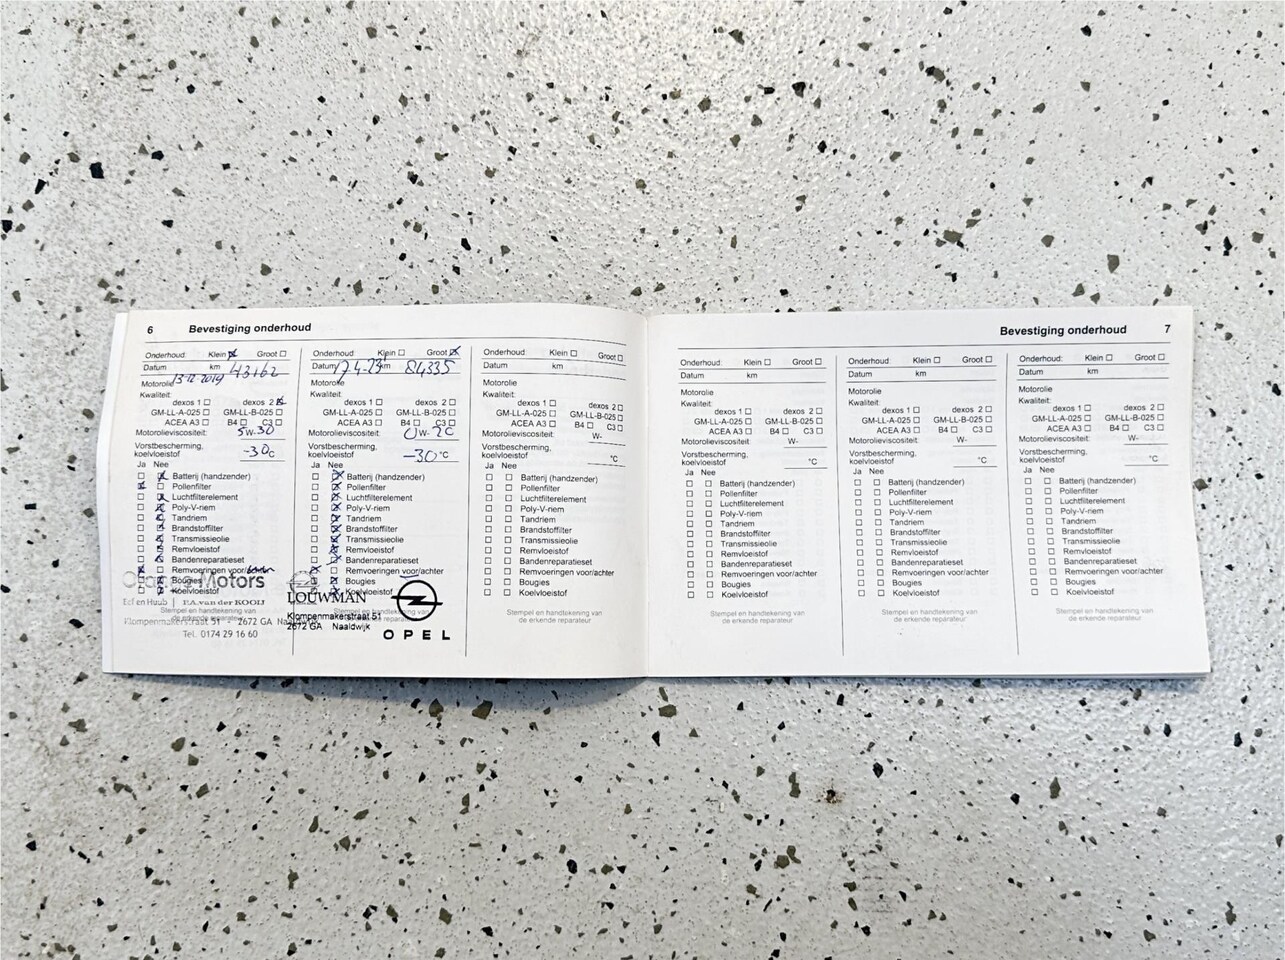 6 Bevestiging onderhoud
Onderhoud: Klein Groot
Datum km
13-12-2019 43162
Motorolie
Kwaliteit:
dexos 1 dexos 2
GM-LL-A-025 GM-LL-B-025
ACEA A3 B4 C3
Motorolieviscositeit:
5W-30
Vorstbescherming,
koelvloeistof -30°C
Ja Nee
Batterij (handzender)
Pollenfilter
Luchtfilterelement
Poly-V-riem
Tandriem
Brandstoffilter
Transmissieolie
Remvloeistof
Bandenreparatieset
Remvoeringen voor/achter
Bougies
Koelvloeistof
Stempel en handtekening van
de erkende reparateur
Motors
P.A. van der KOOIJ
Klompenmakerstraat 51 - 2672 GA Naaldwijk
Tel. 0174 29 16 60
Onderhoud: Klein Groot
Datum 17-4-23 km 84335
Motorolie
Kwaliteit:
dexos 1 dexos 2
GM-LL-A-025 GM-LL-B-025
ACEA A3 B4 C3
Motorolieviscositeit:
0W-20
Vorstbescherming,
koelvloeistof -30°C
Ja Nee
Batterij (handzender)
Pollenfilter
Luchtfilterelement
Poly-V-riem
Tandriem
Brandstoffilter
Transmissieolie
Remvloeistof
Bandenreparatieset
Remvoeringen voor/achter
Bougies
Koelvloeistof
Stempel en handtekening van
de erkende reparateur
LOUWMAN
Klompenmakerstraat 51
2672 GA Naaldwijk
OPEL
Onderhoud: Klein Groot
Datum km
Motorolie
Kwaliteit:
dexos 1 dexos 2
GM-LL-A-025 GM-LL-B-025
ACEA A3 B4 C3
Motorolieviscositeit: W-
Vorstbescherming,
koelvloeistof °C
Ja Nee
Batterij (handzender)
Pollenfilter
Luchtfilterelement
Poly-V-riem
Tandriem
Brandstoffilter
Transmissieolie
Remvloeistof
Bandenreparatieset
Remvoeringen voor/achter
Bougies
Koelvloeistof
Stempel en handtekening van
de erkende reparateur
Bevestiging onderhoud 7
Onderhoud: Klein Groot
Datum km
Motorolie
Kwaliteit:
dexos 1 dexos 2
GM-LL-A-025 GM-LL-B-025
ACEA A3 B4 C3
Motorolieviscositeit:
W-
Vorstbescherming,
koelvloeistof °C
Ja Nee
Batterij (handzender)
Pollenfilter
Luchtfilterelement
Poly-V-riem
Tandriem
Brandstoffilter
Transmissieolie
Remvloeistof
Bandenreparatieset
Remvoeringen voor/achter
Bougies
Koelvloeistof
Stempel en handtekening van
de erkende reparateur
Onderhoud: Klein Groot
Datum km
Motorolie
Kwaliteit:
dexos 1 dexos 2
GM-LL-A-025 GM-LL-B-025
ACEA A3 B4 C3
Motorolieviscositeit:
W-
Vorstbescherming,
koelvloeistof °C
Ja Nee
Batterij (handzender)
Pollenfilter
Luchtfilterelement
Poly-V-riem
Tandriem
Brandstoffilter
Transmissieolie
Remvloeistof
Bandenreparatieset
Remvoeringen voor/achter
Bougies
Koelvloeistof
Stempel en handtekening van
de erkende reparateur
Onderhoud: Klein Groot
Datum km
Motorolie
Kwaliteit:
dexos 1 dexos 2
GM-LL-A-025 GM-LL-B-025
ACEA A3 B4 C3
Motorolieviscositeit:
W-
Vorstbescherming,
koelvloeistof °C
Ja Nee
Batterij (handzender)
Pollenfilter
Luchtfilterelement
Poly-V-riem
Tandriem
Brandstoffilter
Transmissieolie
Remvloeistof
Bandenreparatieset
Remvoeringen voor/achter
Bougies
Koelvloeistof
Stempel en handtekening van
de erkende reparateur